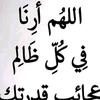 اللهُم أرِنَا
فِي كُلِّ ظَالِم
عجائب قدرتك